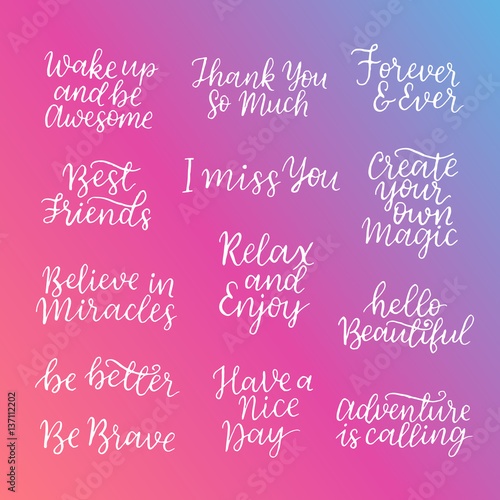 Wake up
and be
Awesome
Thank You
So Much
Forever
& Ever
Best
Friends
I miss You
Create
your
own
Magic
Believe in
Miracles
Relax
and
Enjoy
hello
Beautiful
be better
Be Brave
Have a
Nice
Day
Adventure
is calling
Adobe Stock | #137112202